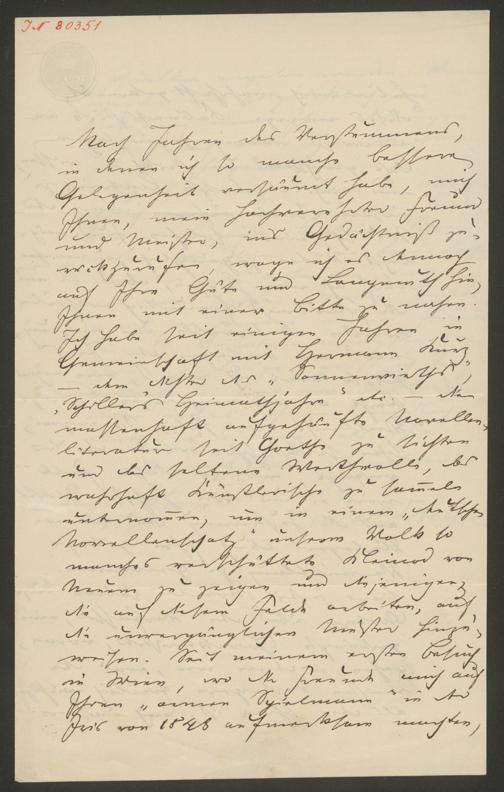 IN 80351
Nach Jahren des Verstummens,
in denen ich so manche bessere
Gelegenheit versäumt habe, mich
Ihnen, mein hochverehrter Freund
und Meister, ins Gedächtniß zu-
rückzurufen, wage ich es dennoch
auf Ihre Güte und Langmuth hin,
Ihnen mit einer Bitte zu nahen.
Ich habe seit einigen Jahren in
Gemeinschaft mit Hermann Kurz
— dem Dichter des „Sonnenwirths",
„Schillers Heimathjahre" etc. — die
massenhaft aufgehäufte Novellen-
literatur seit Goethe zu sichten
und das seltene Werthvolle, das
wahrhaft Künstlerische zu sam̅eln
unternom̅en, um in einem „deutschen
Novellenschatz" unserm Volk so
manches verschüttete Kleinod von
Neuem zu zeigen und diejenigen,
die auf diesem Felde arbeiten, auf
die unvergänglichen Muster hinzu-
weisen. Seit meinem ersten Besuch
in Wien, wo die Freunde mich auf
Ihren „armen Spielmann" in der
Iris von 1848 aufmerksam machten,